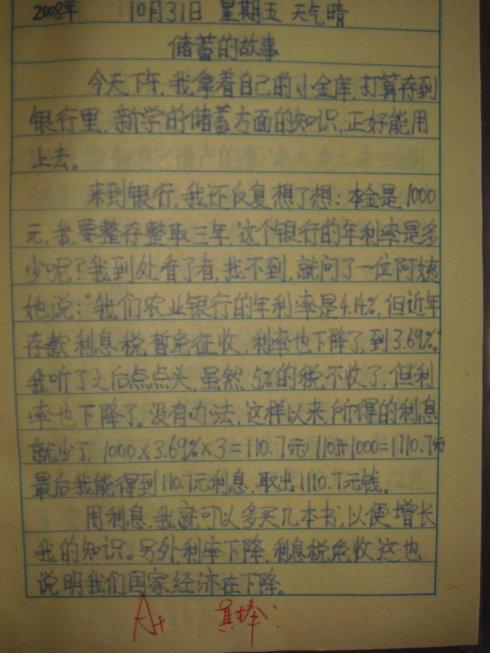 2008年 10月31日 星期五 天气晴
储蓄的故事
今天下午,我拿着自己的小金库,打算存到
银行里,新学的储蓄方面的知识,正好能用
上去。
来到银行,我还反复想了想:本金是1000
元,我要整存整取三年,这个银行的年利率是多
少呢?我到处看了看,找不到,就问了一位阿姨
她说:"我们农业银行的年利率是4.14%,但近年
存款利息税暂免征收,利率也下降了,到3.69%"
我听了之后点点头,虽然5%的税不收了,但利
率也下降了。没有办法,这样以来,所得的利息
就少了,1000×3.69%×3=110.7元 110.7+1000=1110.7元
最后我能得到110.7元利息,取出1110.7元钱。
用利息,我就可以多买几本书,以便增长
我的知识。另外利率下降,利息税免收,这也
说明我们国家经济在下降。
A+ 真棒!